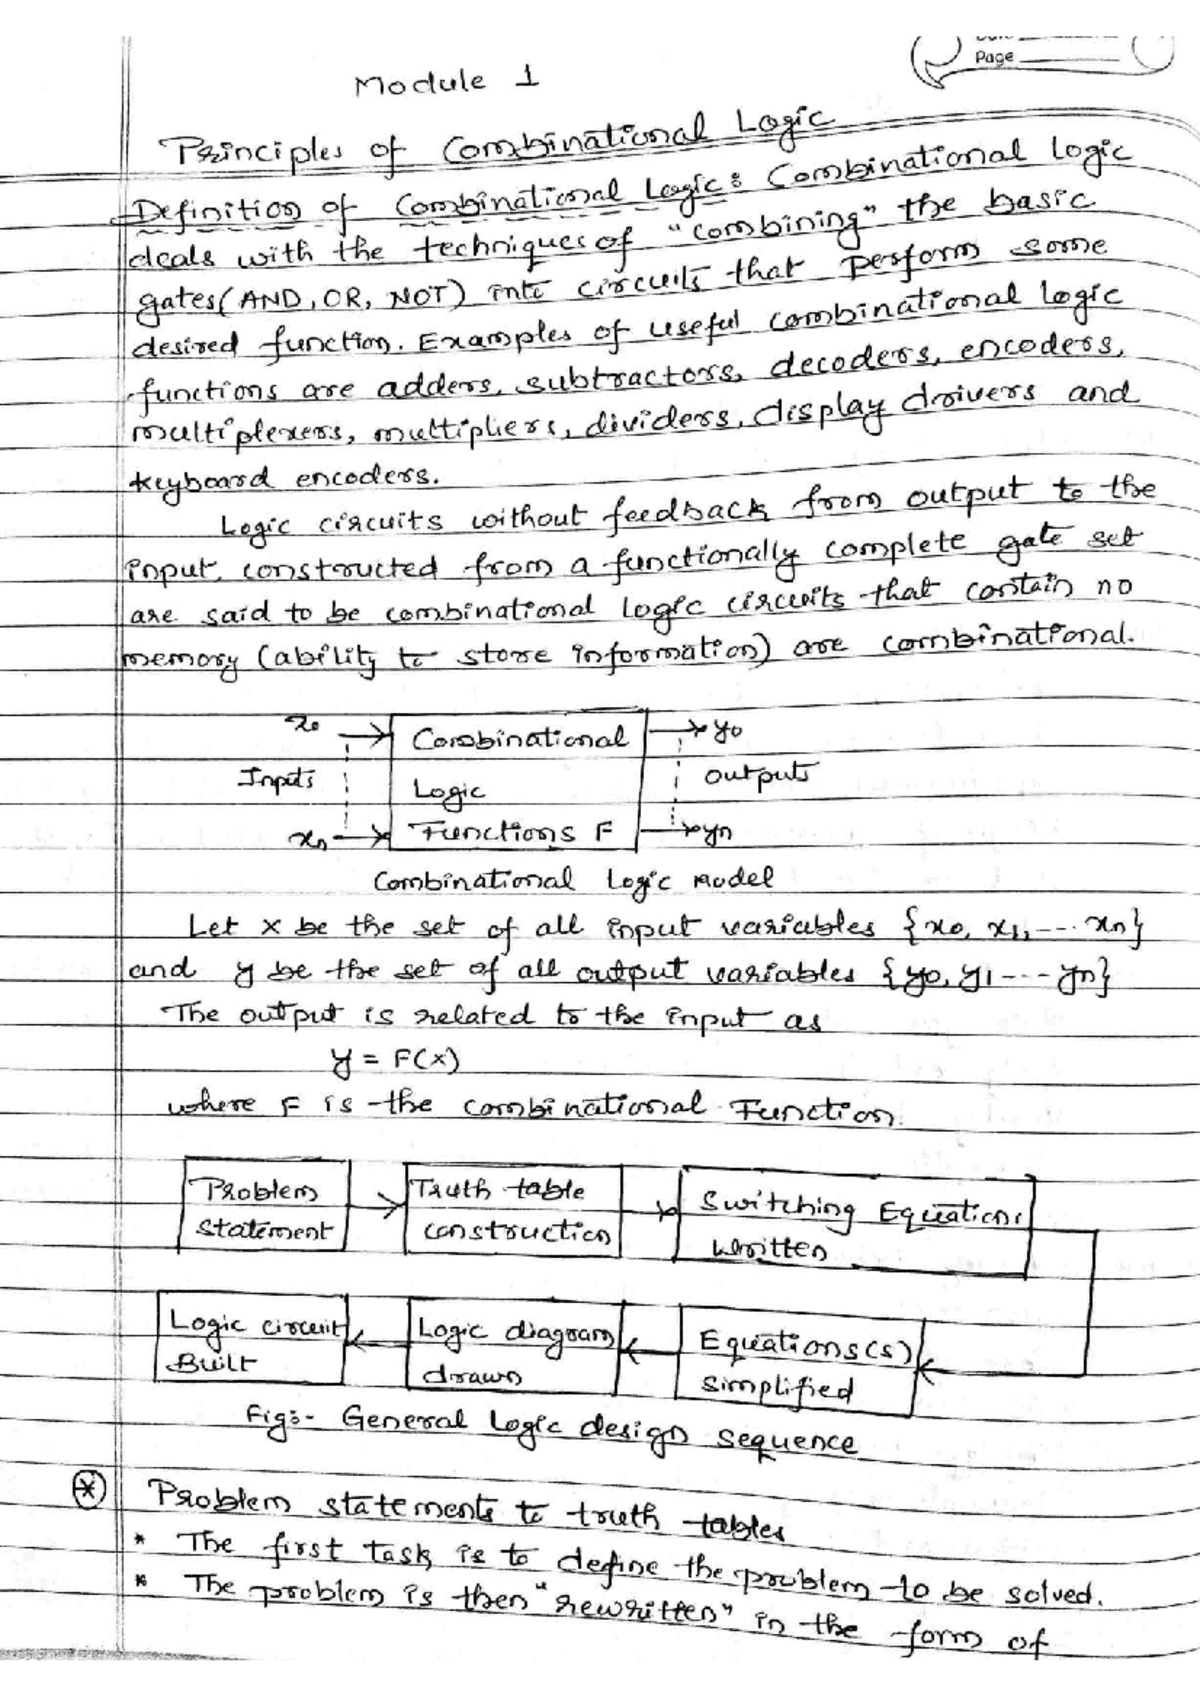 Page
Module 1
Principles of Combinational Logic
Definition of Combinational Logic: Combinational Logic
deals with the techniques of "combining" the basic
gates(AND, OR, NOT) into circuits that perform some
desired function. Examples of useful combinational logic
functions are adders, subtractors, decoders, encoders,
multiplexers, multipliers, dividers, display drivers and
keyboard encoders.
Logic circuits without feedback from output to the
input, constructed from a functionally complete gate set
are said to be combinational logic circuits that contain no
memory (ability to store information) are combinational.
x0 Combinational y0
Inputs Logic outputs
xn Functions F yn
Combinational Logic Model
Let X be the set of all input variables {x0, x1, --- xn}
and y be the set of all output variables {y0, y1 --- yn}
The output is related to the input as
y = F(x)
where F is the combinational Function.
Problem Truth table Switching Equations
statement construction written
Logic circuit Logic diagram Equations(s)
Built drawn simplified
Fig:- General Logic design sequence
* Problem statements to truth tables
* The first task is to define the problem to be solved.
* The problem is then "rewritten" in the form of